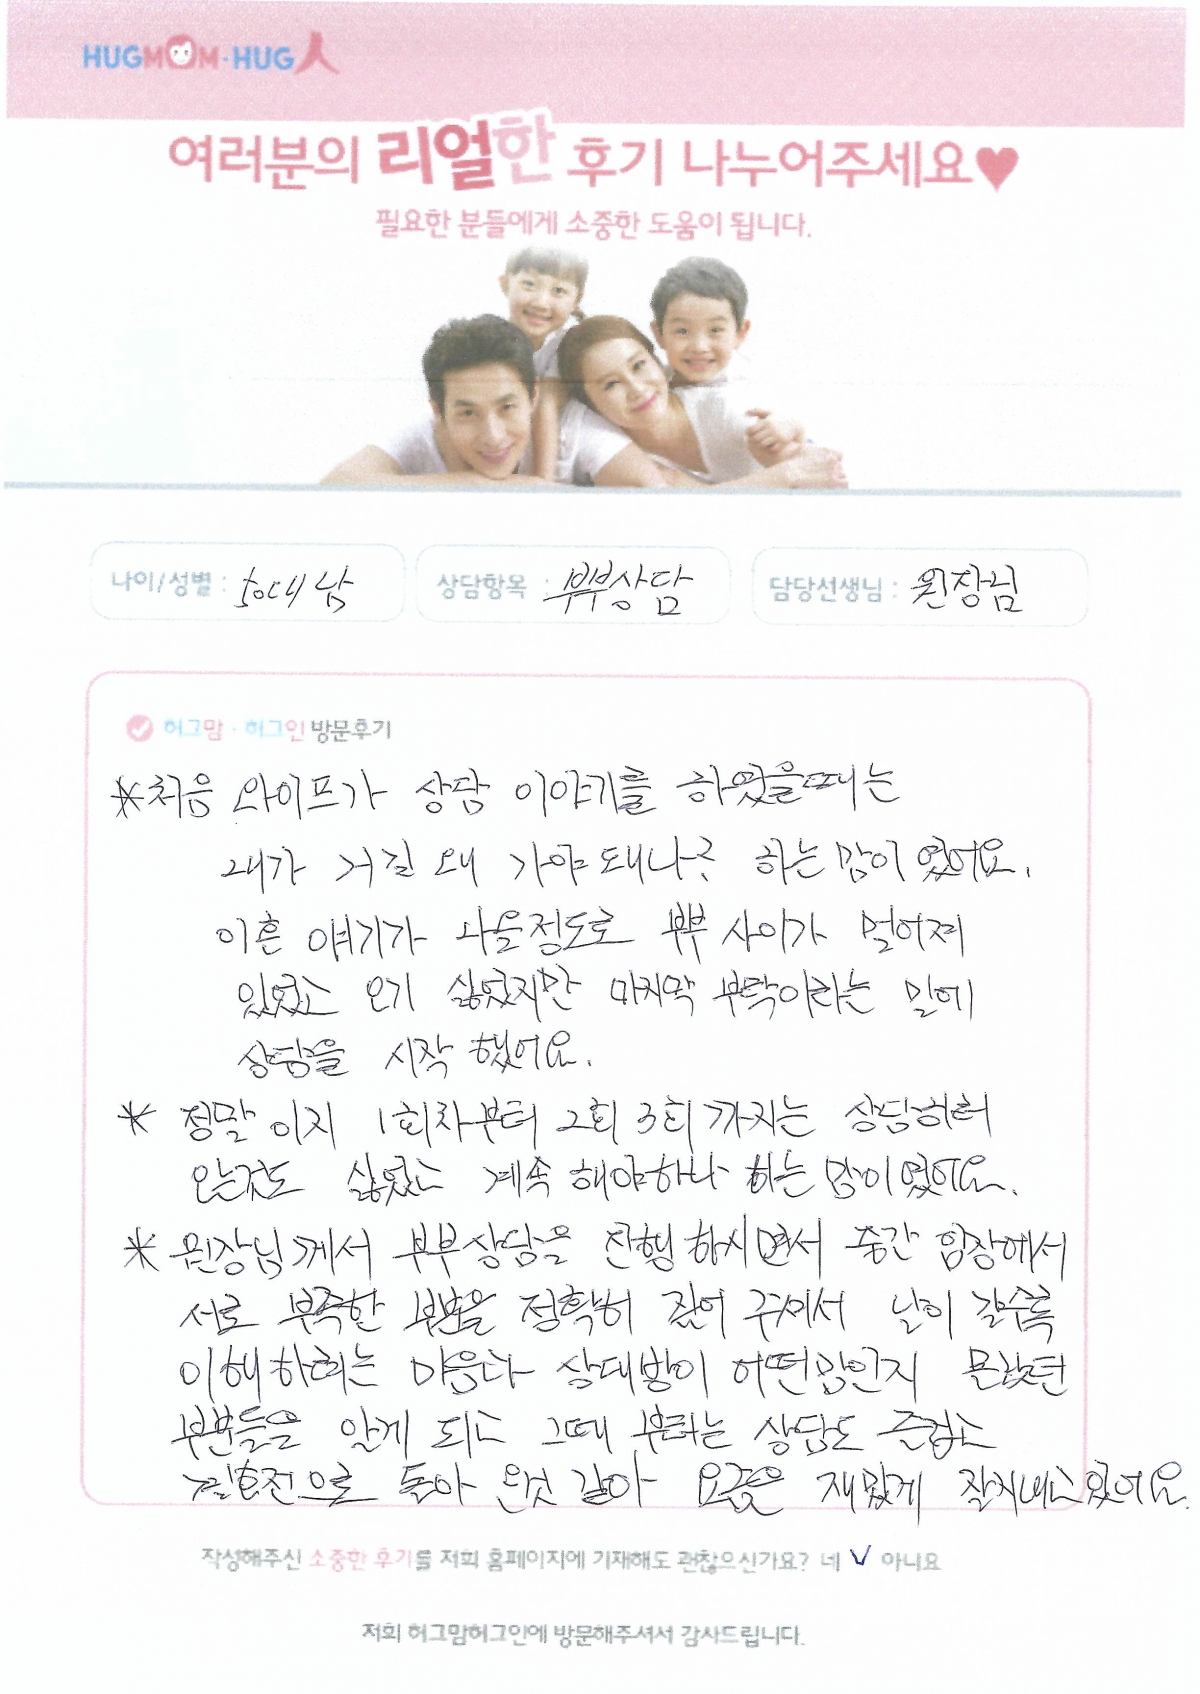 HUGMOM·HUG人
여러분의 리얼한 후기 나누어주세요♥
필요한 분들에게 소중한 도움이 됩니다.
나이/성별 : 50대/남
상담항목 : 부부상담
담당선생님 : 원장님
허그맘·허그인 방문후기
*처음 와이프가 상담 이야기를 하였을때는
내가 거길 왜 가야돼나? 하는맘이였어요.
이혼 얘기가 나올정도로 부부 사이가 멀어져
있었고 오기 싫었지만 마지막 부탁이라는 말에
상담을 시작 했어요.
* 정말이지 1회차부터 2회 3회까지는 상담하러
오는것도 싫었고 계속 해야하나 하는맘이였어요.
* 원장님께서 부부상담을 진행하시면서 중간 입장에서
서로 부족한 부분을 정확히 집어 주셔서 날이 갈수록
이해하려는 마음과 상대방이 어떤맘인지 몰랐던
부분들을 알게 되고 그때부터는 상담도 즐겁고
결혼전으로 돌아 온것 같아 요즘은 재밌게 잘지내고있어요.
작성해주신 소중한 후기를 저희 홈페이지에 기재해도 괜찮으신가요? 네 ✓ 아니요
저희 허그맘허그인에 방문해주셔서 감사드립니다.